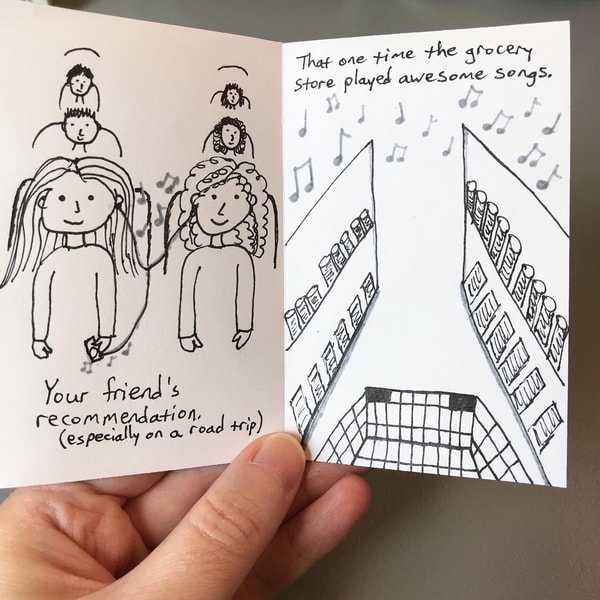 Your friend's
recommendation.
(especially on a road trip)
That one time the grocery
store played awesome songs.